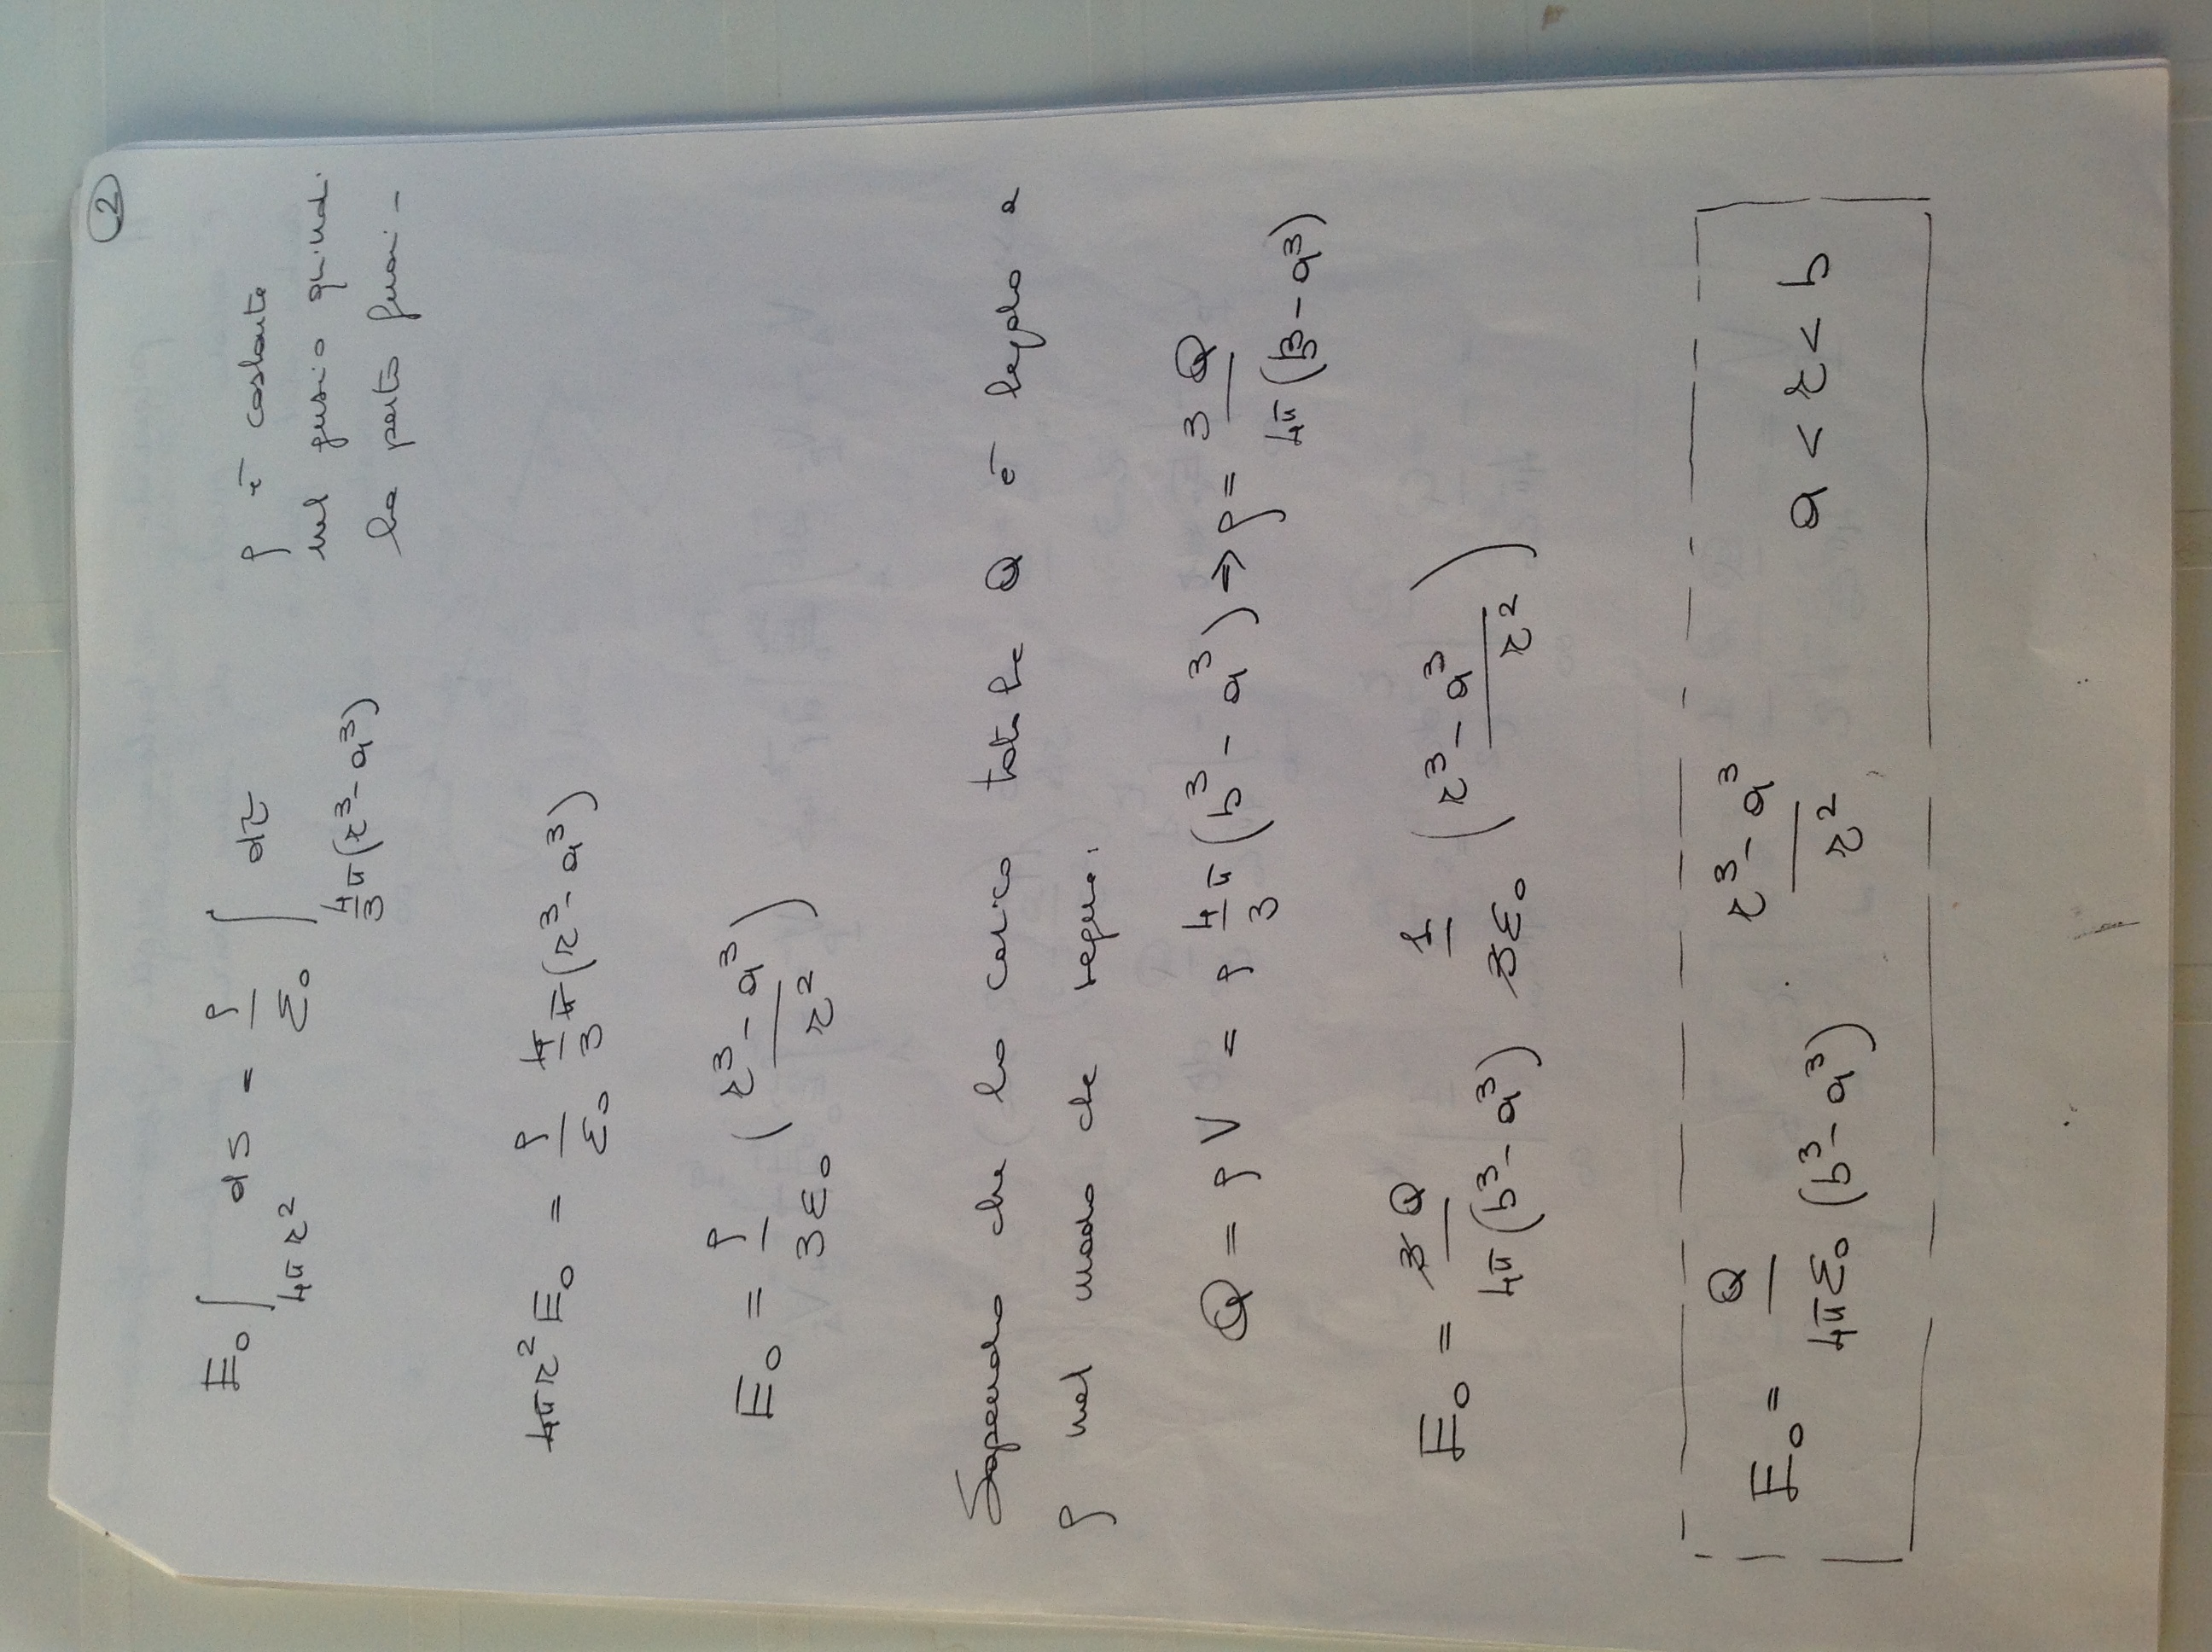 2
E₀ ∫_{4πr²} dS = ρ/ε₀ ∫_{4/3 π(r³-a³)} dτ
ρ è costante
nel guscio quindi
la porto fuori -
4πr² E₀ = ρ/ε₀ 4/3 π(r³-a³)
E₀ = ρ/3ε₀ ( r³-a³ / r² )
Sapendo che la carica totale Q è legata a
ρ nel modo che segue:
Q = ρV = ρ 4/3 π (b³ - a³) ⇒ ρ = 3Q / 4π(b³-a³)
E₀ = 3Q / 4π(b³-a³) 1/3ε₀ ( r³-a³ / r² )
E₀ = Q / 4πε₀(b³-a³) · r³-a³ / r² a < r < b